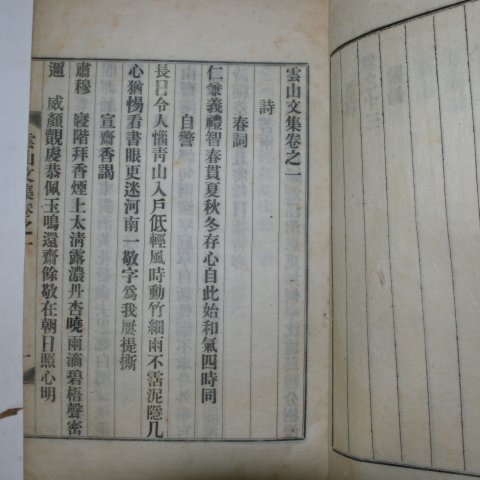 雲山文集卷之一
詩
春詞
仁兼義禮智春貫夏秋冬存心自此始和氣四時同
自警
長日令人惱靑山入戶低輕風時動竹細雨不霑泥隱几
心猶惕看書眼更迷河南一敬字爲我屢提撕
宣齋香謁
肅穆 寢階拜香煙上太淸露濃丹杏曉雨滴碧梧聲密
邇 威顏覿虔恭佩玉鳴還齋餘敬在朝日照心明
雲山文集卷之一
一